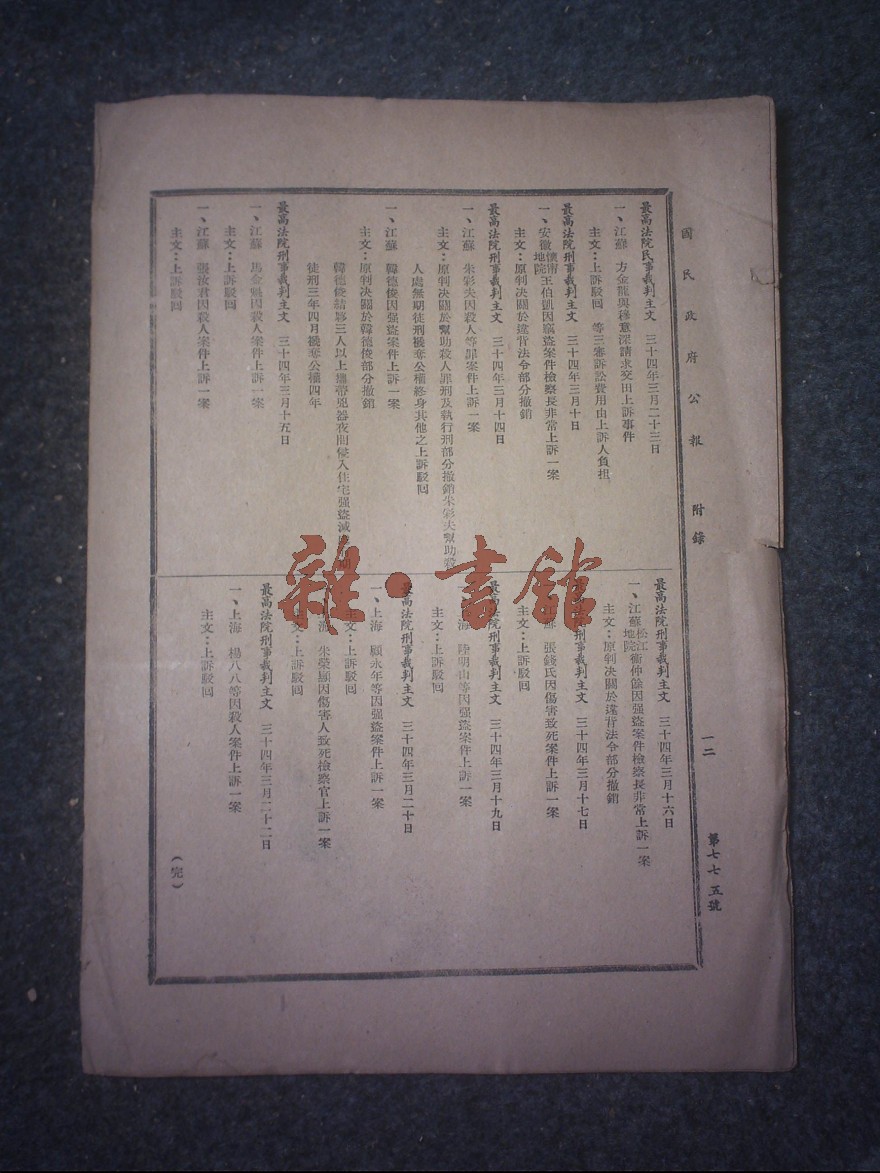 國民政府公報 附錄
一二
第七七五號
最高法院民事裁判主文 三十四年三月二十三日
一、江蘇 方金龍與穆意深請求交田上訴事件
主文：上訴駁回 等三審訴訟費用由上訴人負担
最高法院刑事裁判主文 三十四年三月十日
一、安徽懷甯地院王伯凱因竊盜案件檢察長非常上訴一案
主文：原判决關於違背法令部分撤銷
最高法院刑事裁判主文 三十四年三月十四日
一、江蘇 朱彩夫因殺人等罪案件上訴一案
主文：原判决關於幫助殺人罪刑及執行刑部分撤銷朱彩夫幫助殺
人處無期徒刑褫奪公權終身其他之上訴駁回
一、江蘇 韓德俊因强盜案件上訴一案
主文：原判决關於韓德俊部分撤銷
韓德俊結夥三人以上攜帶兇器夜間侵入住宅强盜減處
徒刑三年四月褫奪公權四年
最高法院刑事裁判主文 三十四年三月十五日
一、江蘇 馬金魁因殺人案件上訴一案
主文：上訴駁回
一、江蘇 張汝君因殺人案件上訴一案
主文：上訴駁回
最高法院刑事裁判主文 三十四年三月十六日
一、江蘇松江地院衞仲餘因强盜案件檢察長非常上訴一案
主文：原判决關於違背法令部分撤銷
法院刑事裁判主文 三十四年三月十七日
張錢氏因傷害致死案件上訴一案
主文：上訴駁回
最高法院刑事裁判主文 三十四年三月十九日
海 陸明山等因强盜案件上訴一案
主文：上訴駁回
最高法院刑事裁判主文 三十四年三月二十日
一、上海 顧永年等因强盜案件上訴一案
主文：上訴駁回
海 朱榮顯因傷害人致死檢察官上訴一案
主文：上訴駁回
最高法院刑事裁判主文 三十四年三月二十二日
一、上海 楊八八等因殺人案件上訴一案
主文：上訴駁回
（完）
雜·書館